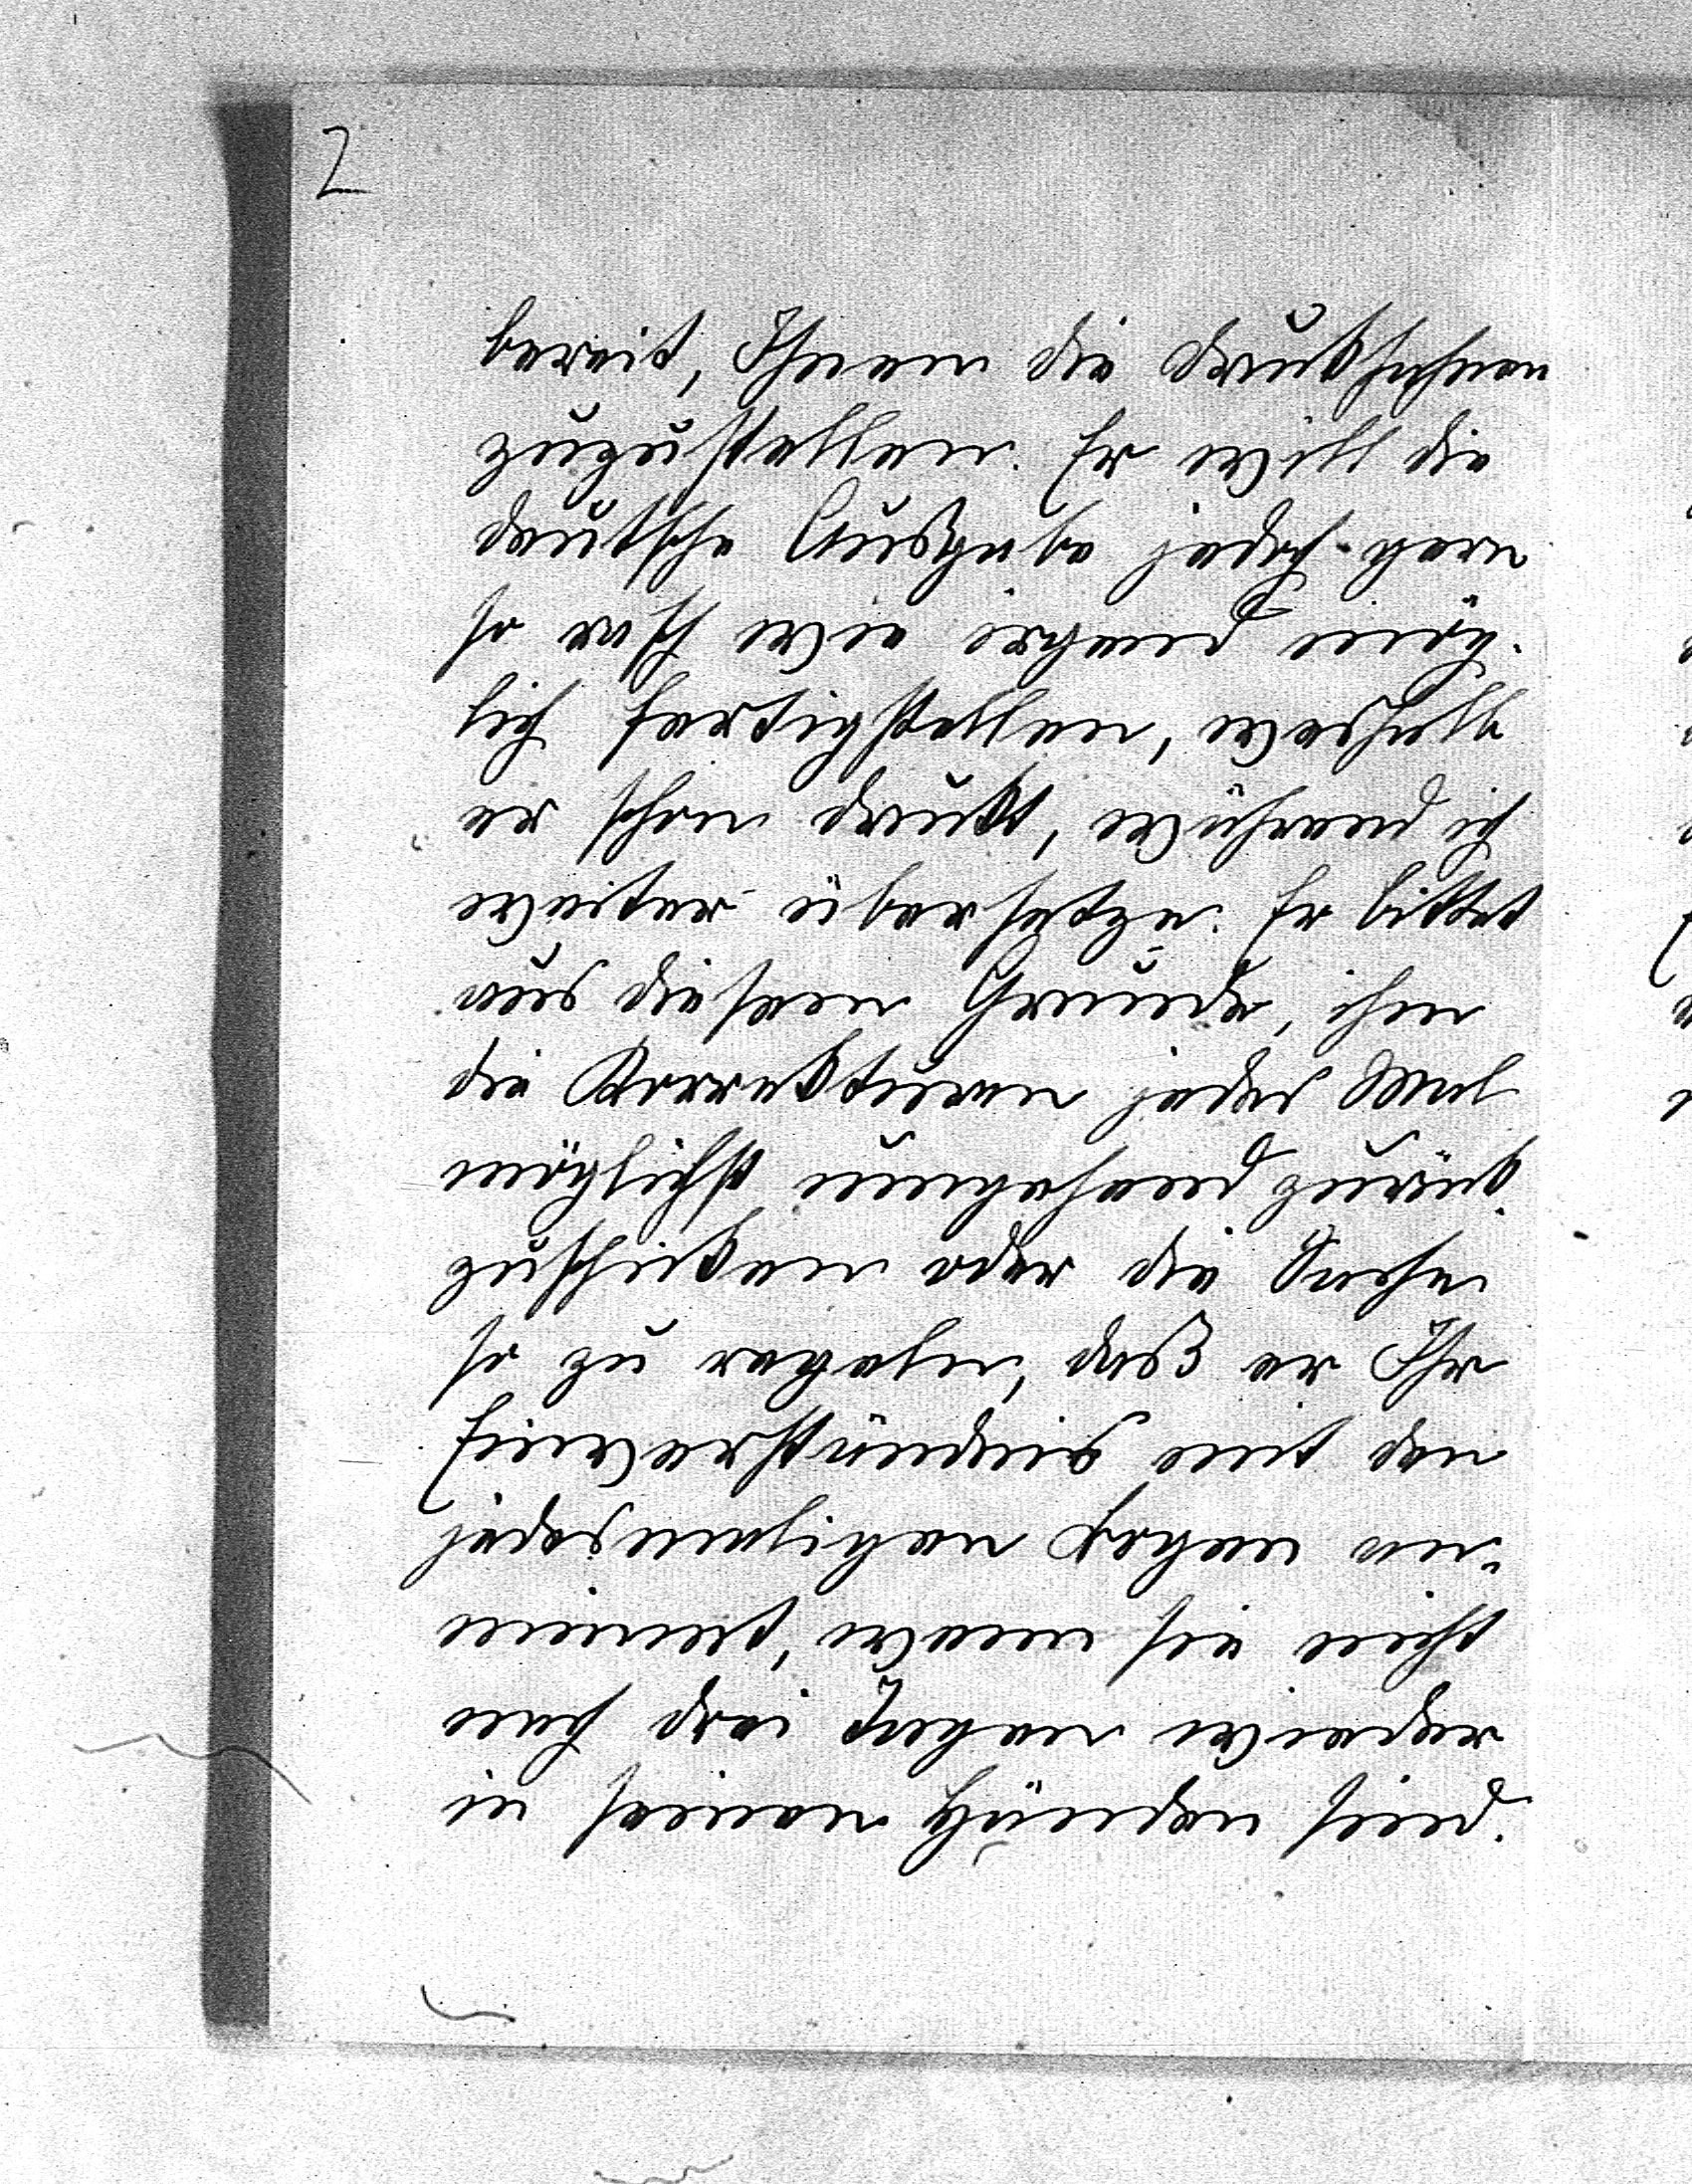 2
bereit, Ihnen die Druckfahnen
zuzustellen. Er will die
deutsche Ausgabe jedoch gern
so rasch wie irgend mög-
lich fertigstellen, weshalb
er schon druckt, während ich
weiter übersetze. Er bittet
aus diesem Grunde, ihm
die Korrekturen jedes Mal
möglichst umgehend zurück-
zuschicken oder die Sache
so zu regeln, daß er Ihr
Einverständnis mit den
jedesmaligen Bogen an-
nimmt, wenn sie nicht
nach drei Tagen wieder
in seinen Händen sind.